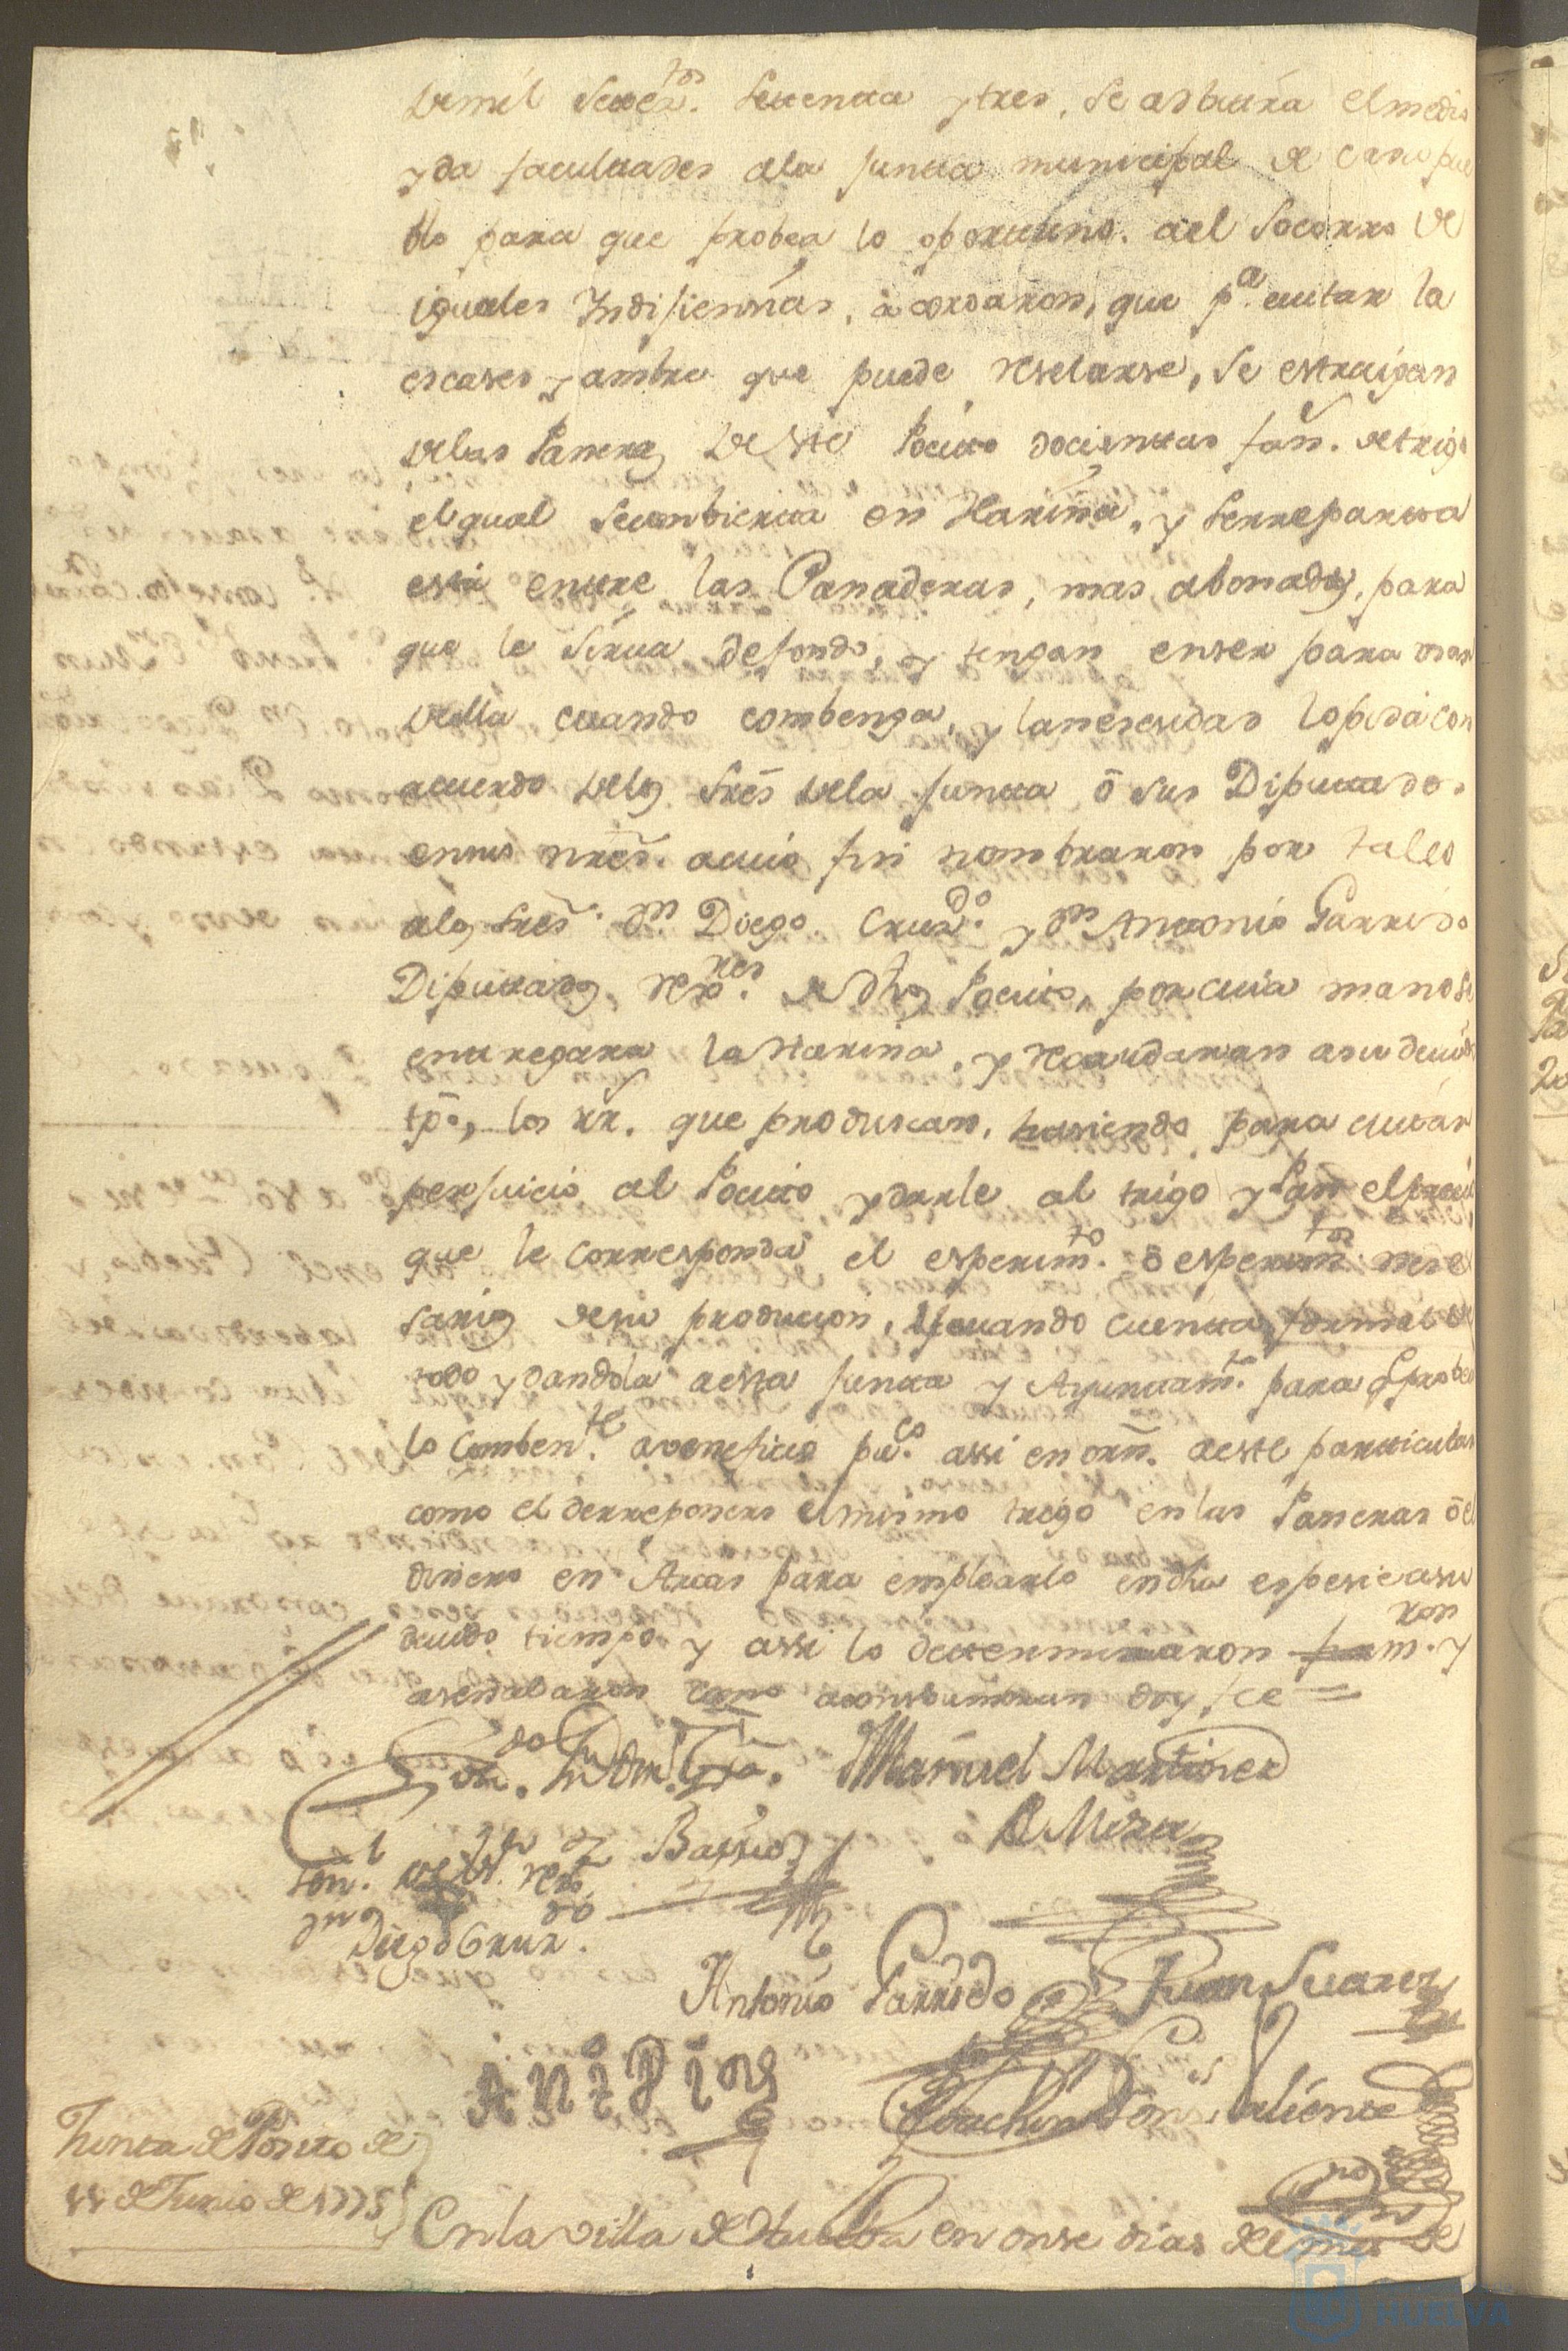 de mil Setez.tos Settenta y tres, Se adbittra el medio
y da facultades ala Juntta municipal de cada pue
blo para que probea lo oporttuno. al Socorro de
iguales Yndisienzias, acordaron, que p.a evitar la
escases y ambre que puede reselarse, Se estraigan
delas Paneras de este Pocito docienttas fan.s de trigo
el qual Se combierta en Harina, y Se rreparta
esta enttre las Panaderas, mas abonadas, para
que le Sirva de fondo, y tengan enser para usar
de ella cuando combenga, y la nesesidad lo pida con
acuerdo delos Sres dela Juntta ô sus Diputtados
a cuio fin nombraron por tales
alos Sres. Dn. Diego Cruz.do y Dn Anttonio Garrido
Diputtados, de dhos Pocito, por cuia mano se
enttregara la Harina, y recaudaran a su devido
tpō, los rr. que produscan, hasiendo para evitar
perjuicio al Pocito y darle al trigo y Pan el precio
que le corresponda el esperim.to ô esperim.tos nese
sarios de su producion, llevando cuentta formal de
todo y dandola a esta Juntta y Ayunttam.to para q probea
lo comben.te a veneficio pu.co assi en orn. a este partticular
como el de rreponers el mismo trigo en las Paneras ô el
dinero en Arcas para emplearlo en dha espesie a su
devido tiempo y assi lo detterminaron firm.ron y
aseñalaron como acostumbran doy fee =
Manuel Martinez
Barrios
de Mora
Diego Cruz.do
Antonio Garrido
Juan Suarez
Joachin Ponse Valiente
Junta de Posito de
11 de Junio de 1775
En la villa de Huelba en onse dias del mes de
HUELVA